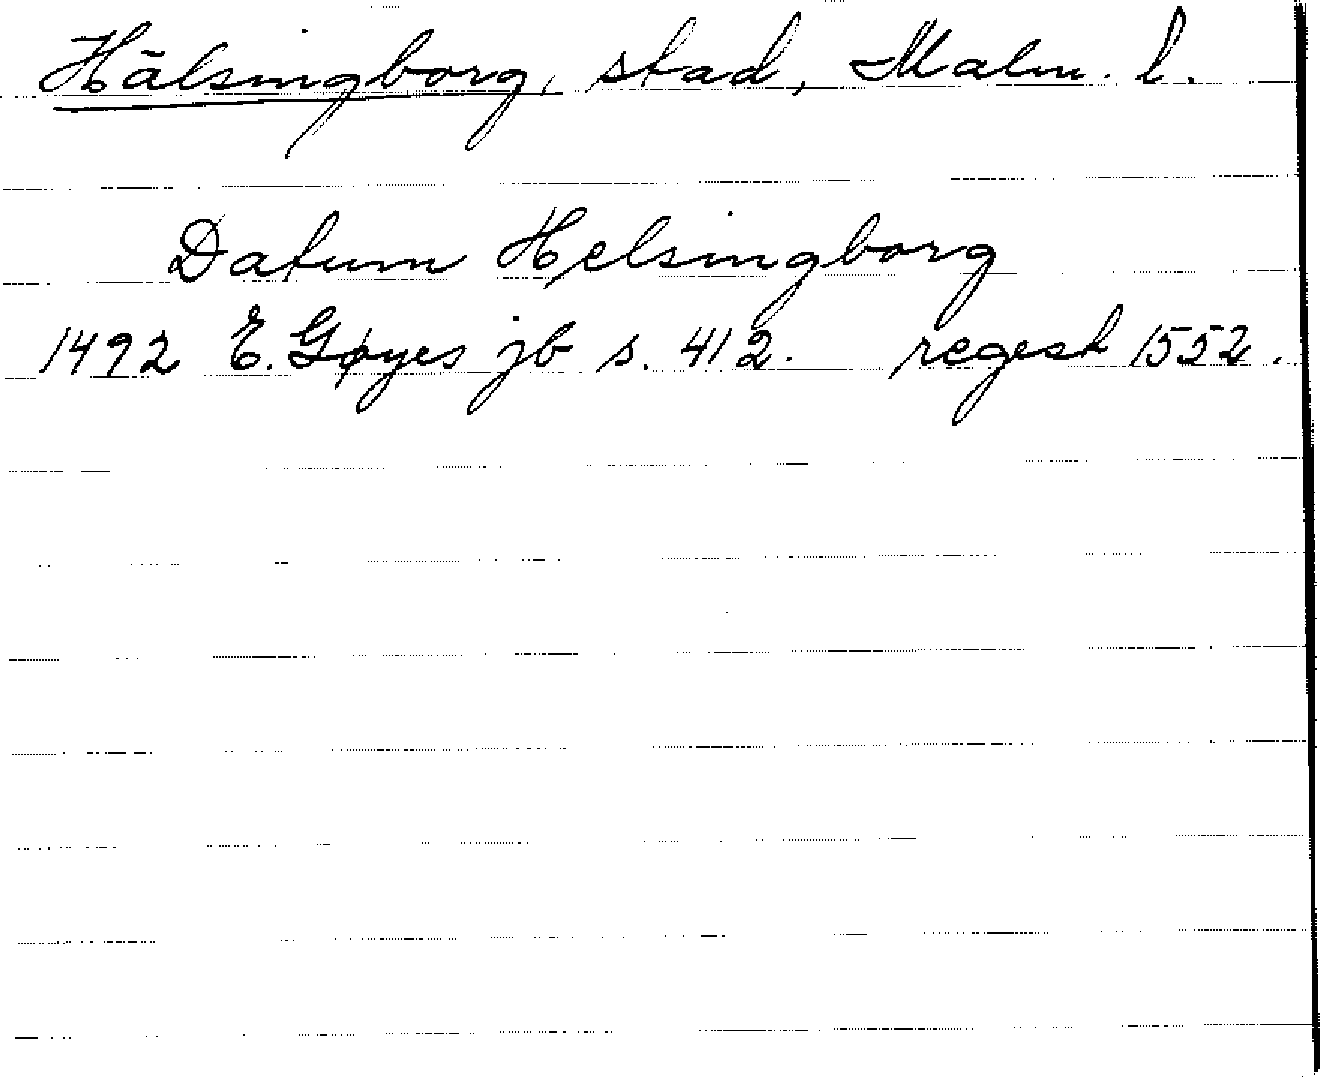 Hälsingborg, stad, Malm. l.
Datum Helsingborg
1492 E. Gøyes jb s. 412. regest 1552.